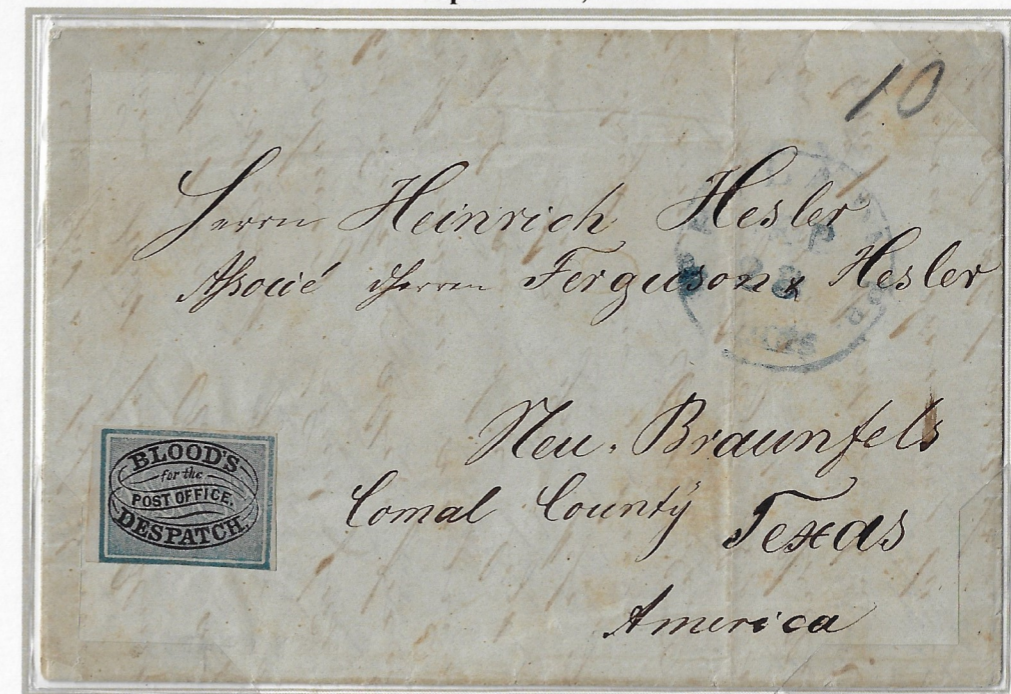 10
Herrn Heinrich Hesler
Associé Herren Ferguson & Hesler
Neu-Braunfels
Comal County
Texas
America
BLOOD'S
for the
POST OFFICE.
DESPATCH.
23